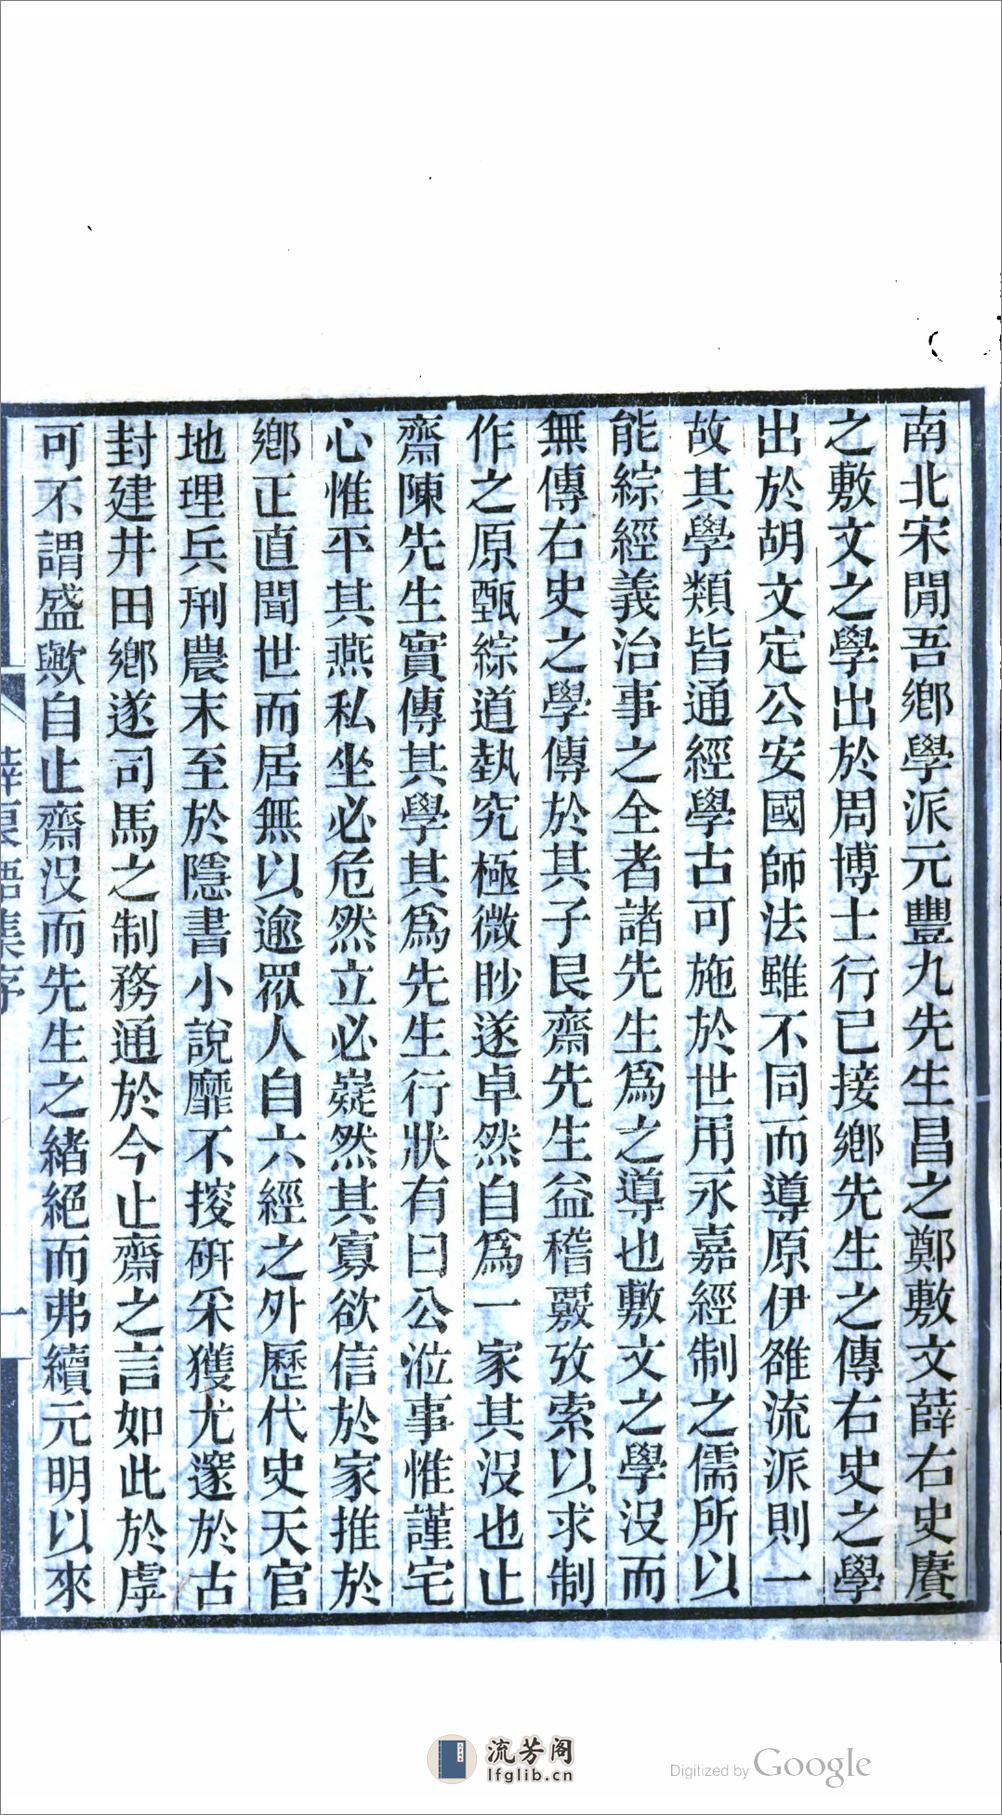 南北宋閒吾鄉學派元豐九先生昌之鄭敷文薛右史賡
之敷文之學出於周博士行已接鄉先生之傳右史之學
出於胡文定公安國師法雖不同而導原伊雒流派則一
故其學類皆通經學古可施於世用永嘉經制之儒所以
能綜經義治事之全者諸先生爲之導也敷文之學沒而
無傳右史之學傳於其子艮齋先生益稽覈攷索以求制
作之原甄綜道埶究極微眇遂卓然自爲一家其沒也止
齋陳先生實傳其學其爲先生行狀有曰公涖事惟謹宅
心惟平其燕私坐必危然立必嶷然其寡欲信於家推於
鄉正直聞世而居無以逾眾人自六經之外歷代史天官
地理兵刑農末至於隱書小說靡不挍硏采獲尤邃於古
封建井田鄉遂司馬之制務通於今止齋之言如此於虖
可不謂盛歟自止齋沒而先生之緒絕而弗續元明以來
薛浪語集序
一
流芳阁
lfglib.cn
Digitized by Google